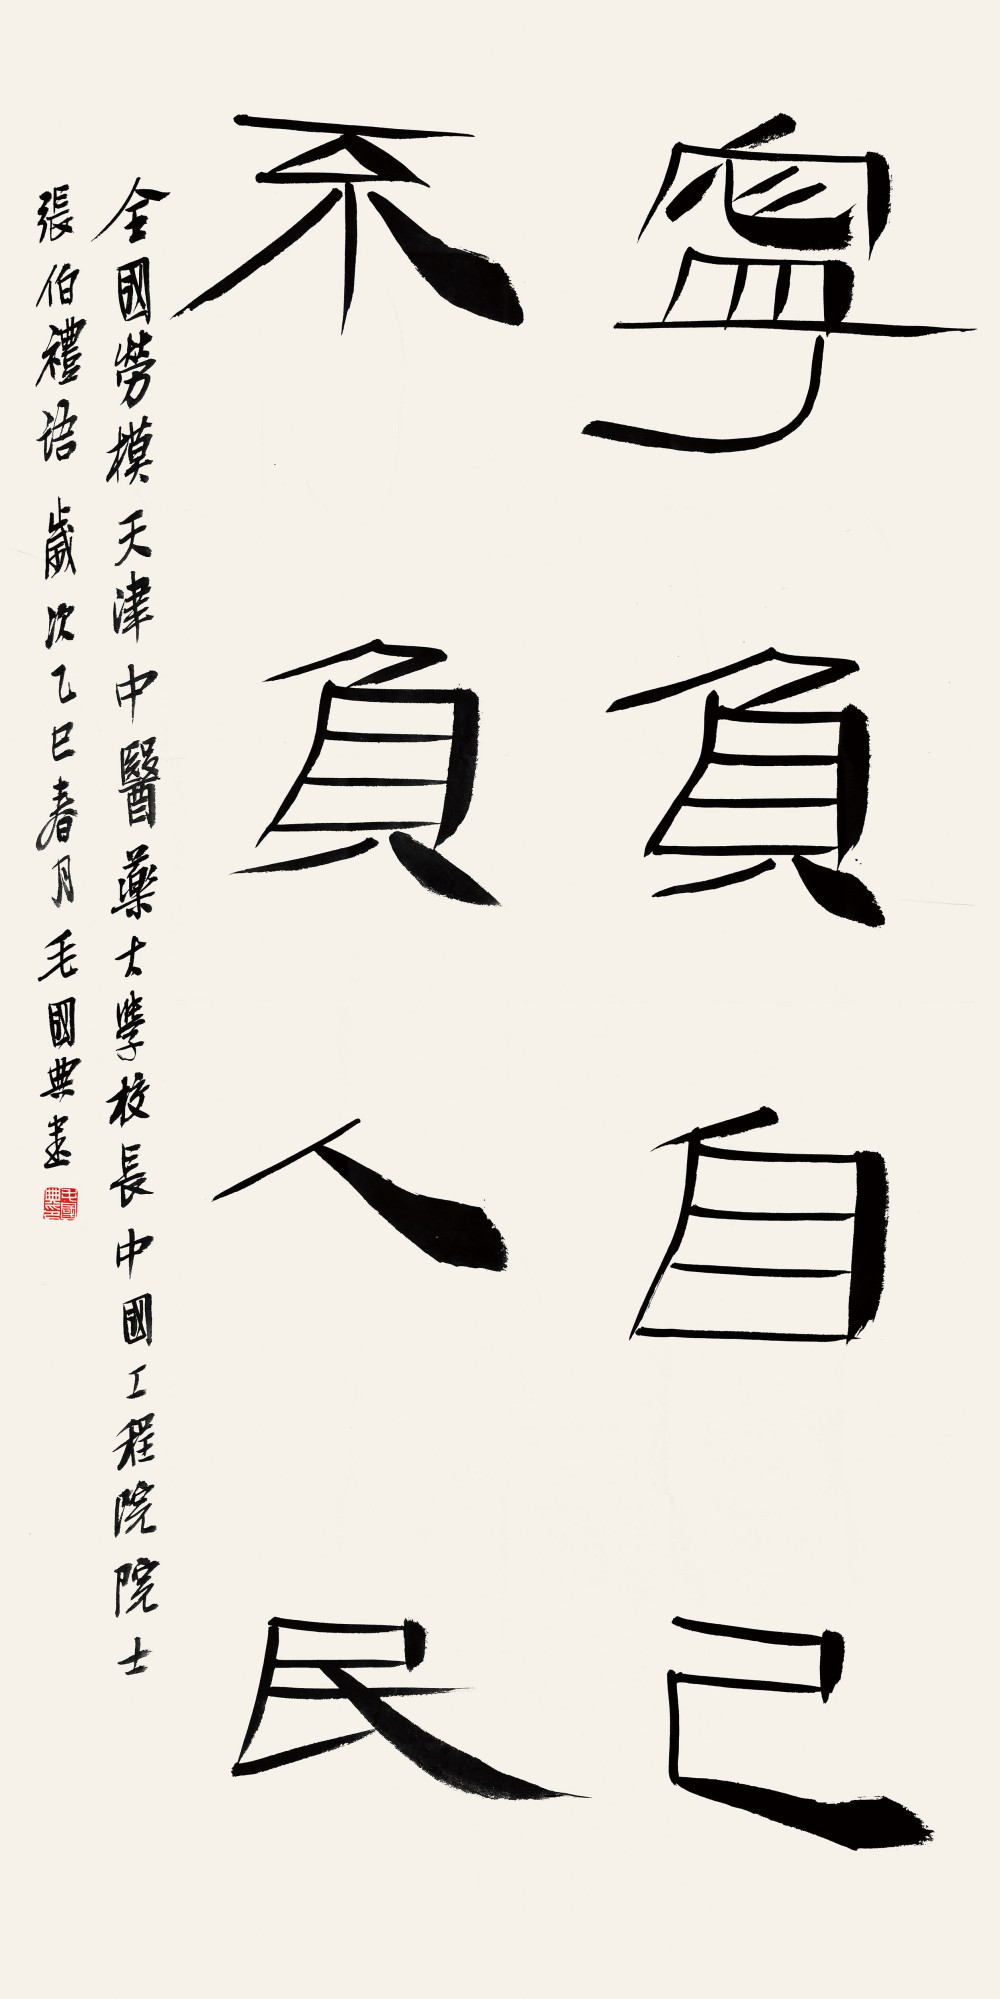 寧負自己
不負人民
全國勞模天津中醫藥大學校長中國工程院院士
張伯禮語 歲次乙巳春月毛國典書